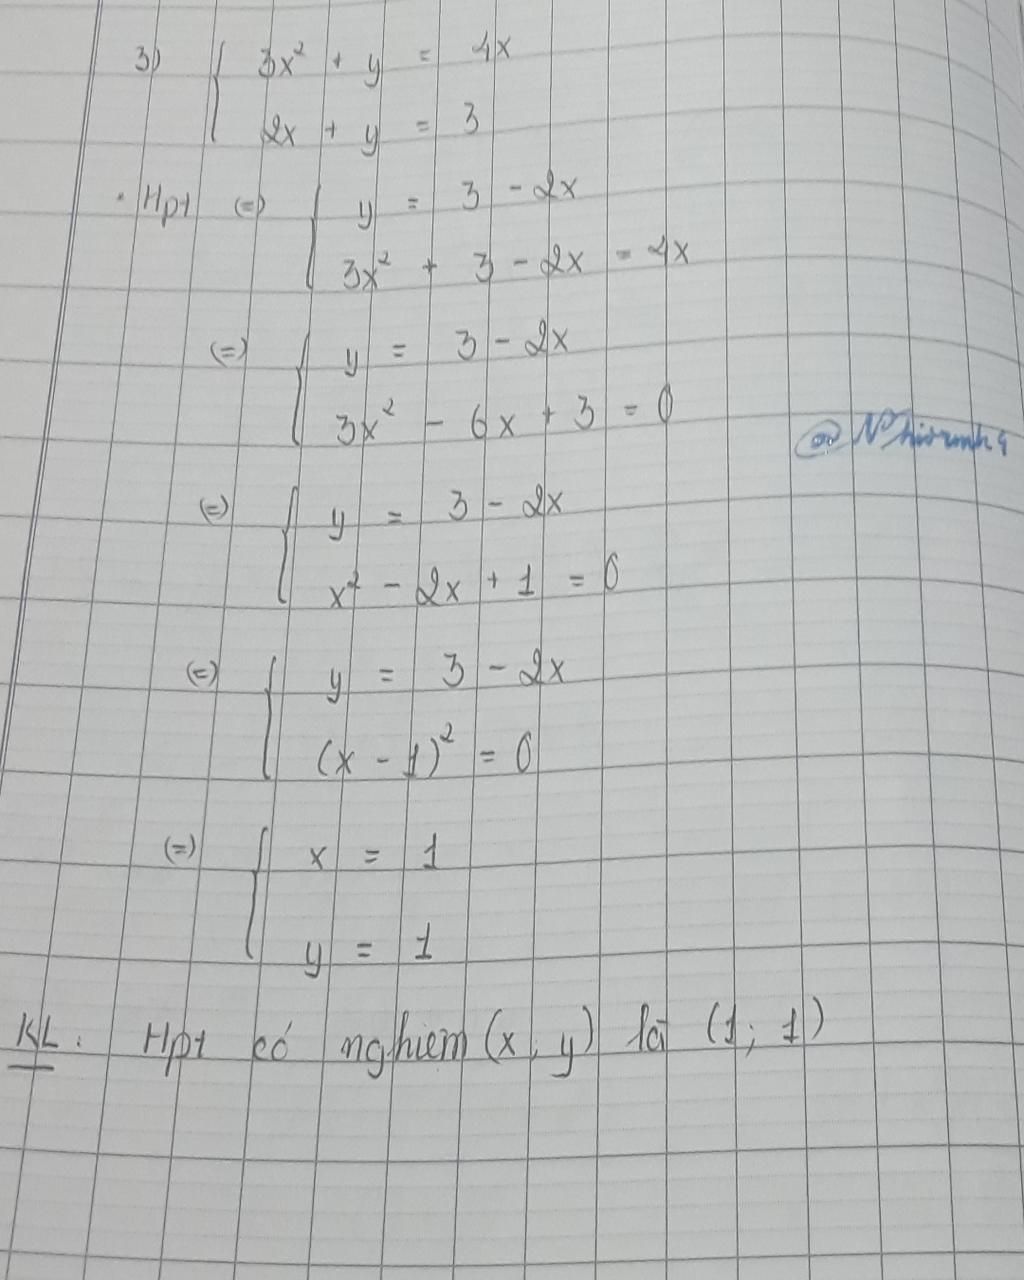 3) { 3x² + y = 4x
2x + y = 3
. Hpt (=) { y = 3 - 2x
3x² + 3 - 2x = 4x
(=) { y = 3 - 2x
3x² - 6x + 3 = 0
(=) { y = 3 - 2x
x² - 2x + 1 = 0
(=) { y = 3 - 2x
(x - 1)² = 0
(=) { x = 1
y = 1
KL: Hpt có nghiêm (x, y) là (1; 1)